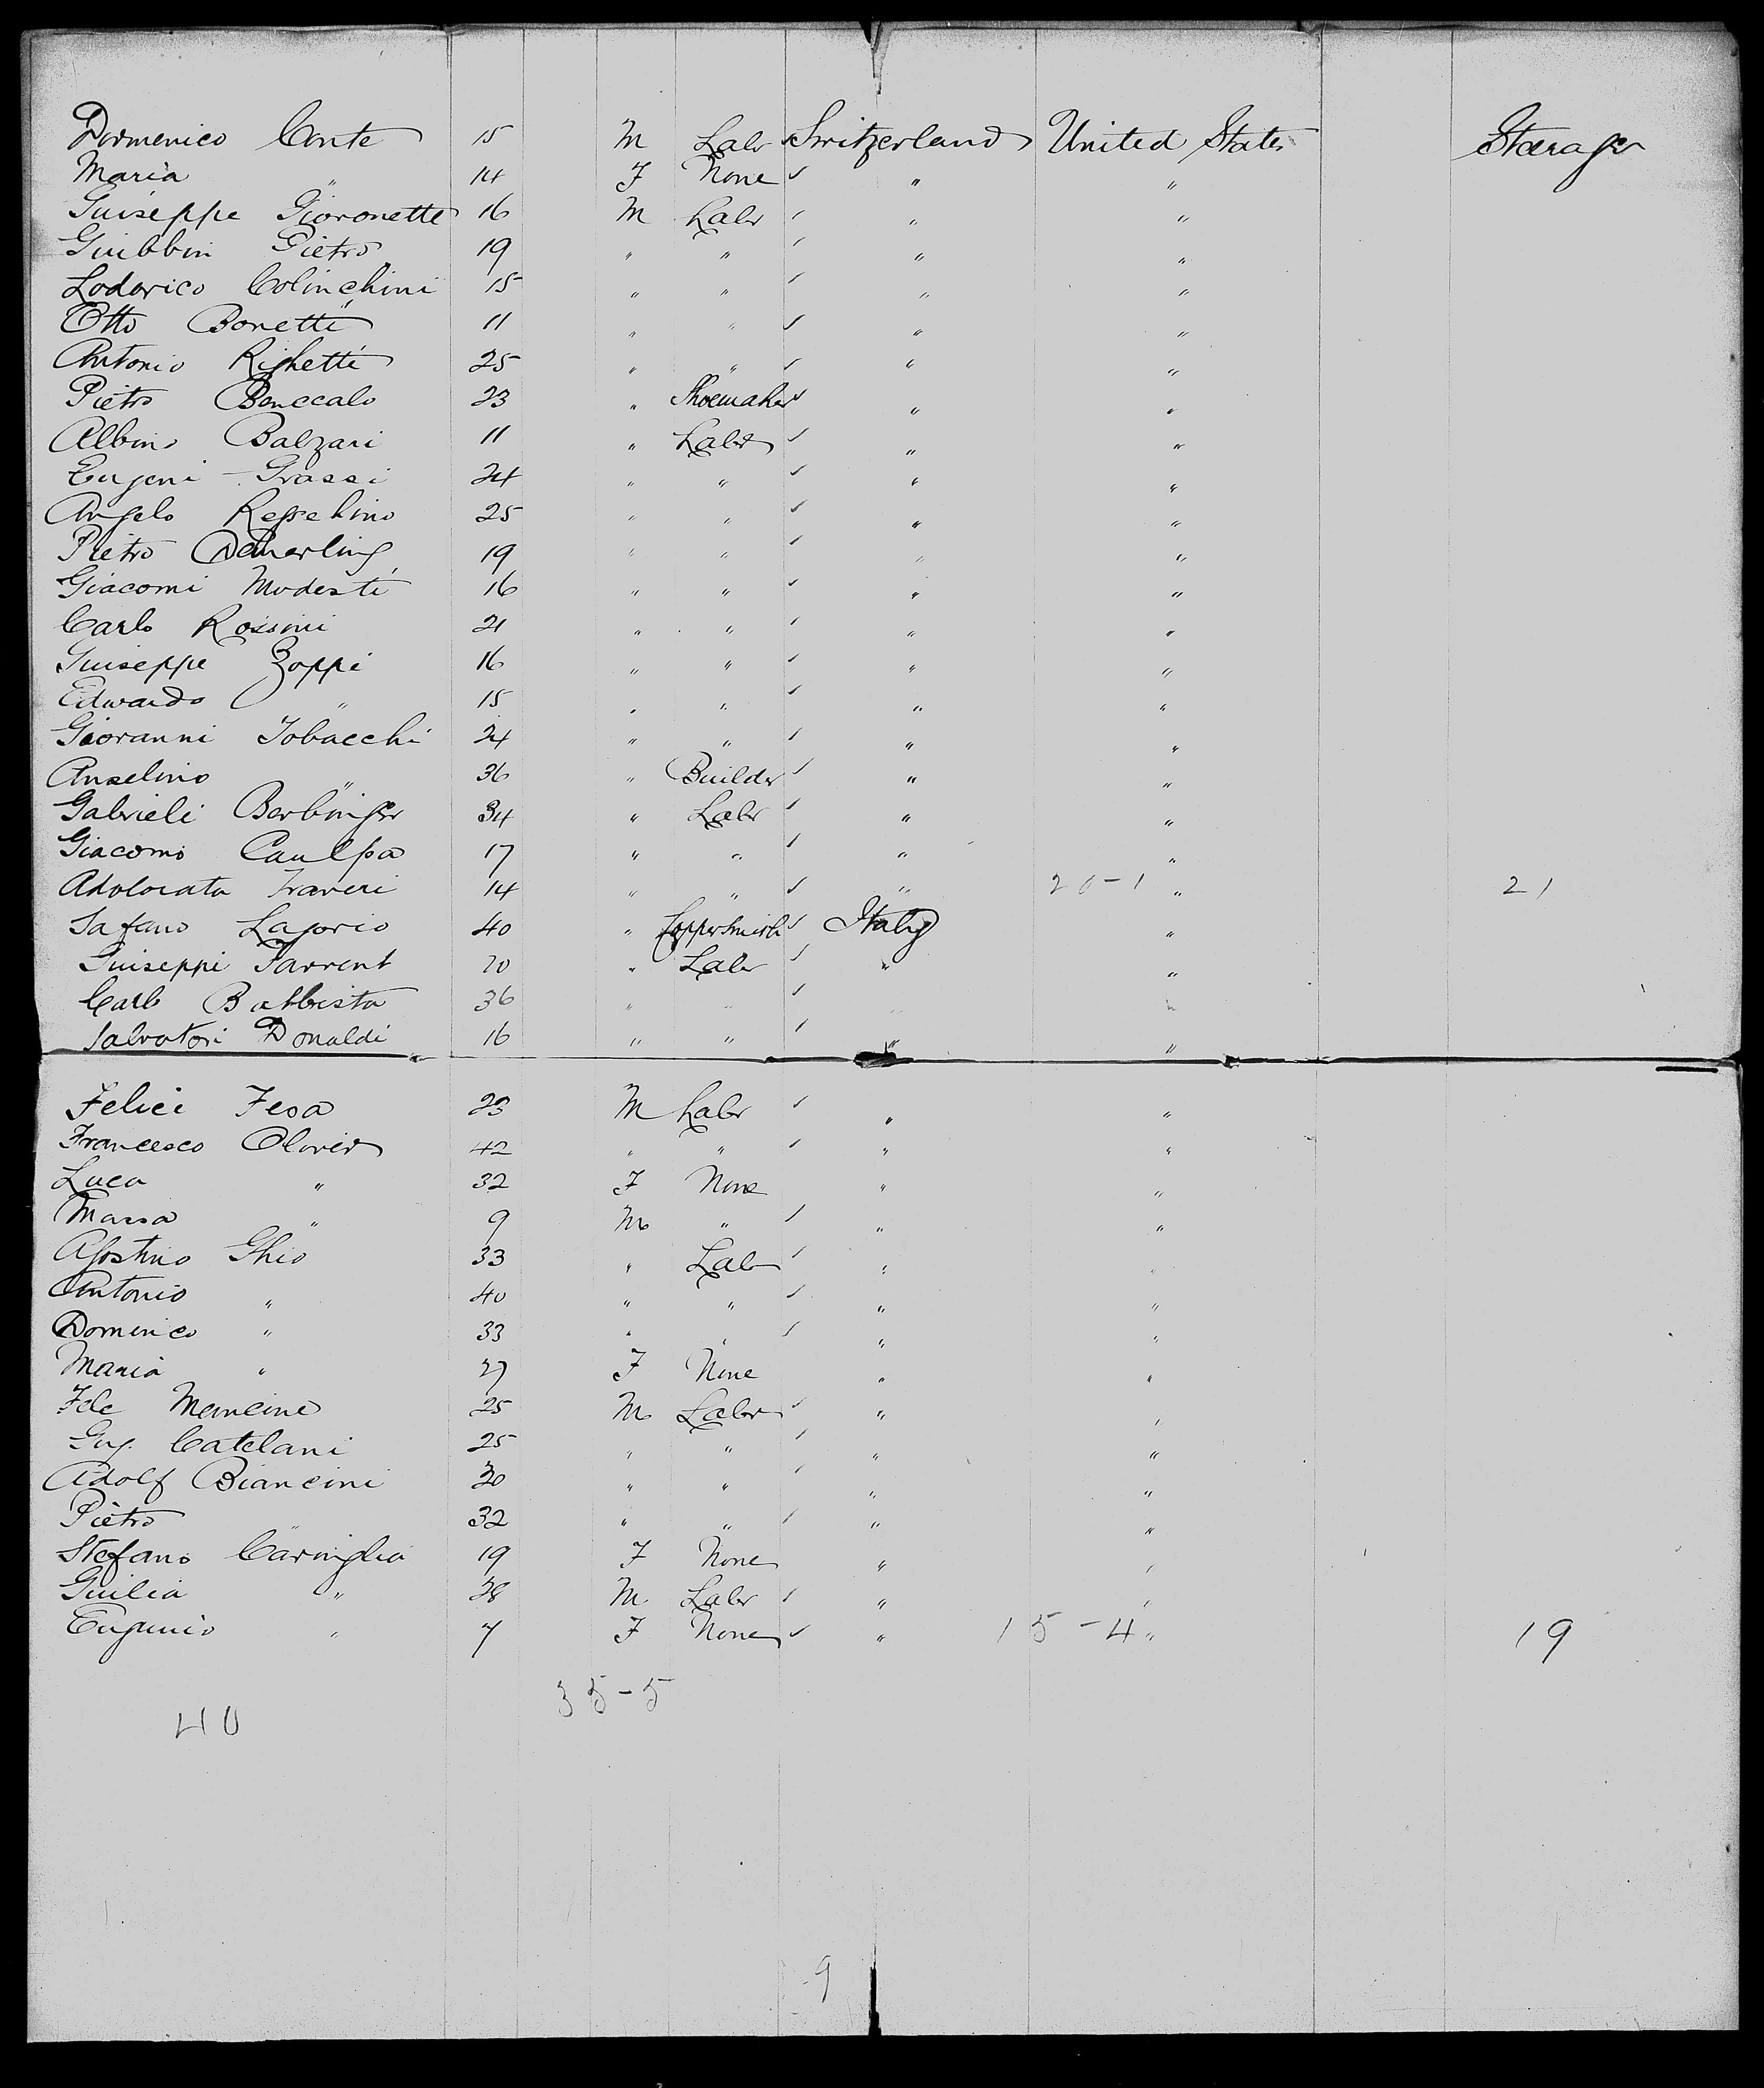 Domenico Conte 15 M Labr Switzerland United States Steerage
Maria " 14 F None " "
Guiseppe Gioronette 16 M Labr " "
Guibbin Pietro 19 " " " "
Lodovico Colinchini 15 " " " "
Otto Bonetti 11 " " " "
Antonio Righetti 25 " " " "
Pietro Boneealo 23 " Shoemaker " "
Albino Balzari 11 " Labr " "
Eugeni Grassi 24 " " " "
Angelo 25 " " " "
Pietro 19 " " " "
Giacomi Modesti 16 " " " "
Carlo Rossini 21 " " " "
Guiseppe Zoppi 16 " " " "
Edwardo " 15 " " " "
Giovanni Tobacchi 24 " " " "
Anselino " 36 " Builder " "
Gabrieli Berbinger 34 " Labr " "
Giacomo 17 " " " "
Adolorata Traveri 14 " " " 20-1 " 21
Safano Lagorio 40 " Coppersmith Italy "
Guiseppi Parrent 20 " Labr " "
Carlo Battista 36 " " " "
Salvatori Donaldi 16 " " " "
Felici Fesa 23 M Labr " "
Francesco Olovier 42 " " " "
Luca " 32 F None " "
Massa " 9 M " " "
Agostino Ghio 33 " Labr " "
Antonio " 40 " " " "
Domenico " 33 " " " "
Maria " 27 F None " "
Fele Mancine 25 M Labr " "
Gug. Catelani 25 " " " "
Adolf Biancini 30 " " " "
Pietro " 32 " " " "
Stefano Caviniglia 19 F None " "
Guilia " 28 M Labr " "
Eugenio " 7 F None " 15-4 " 19
35-5
40
9